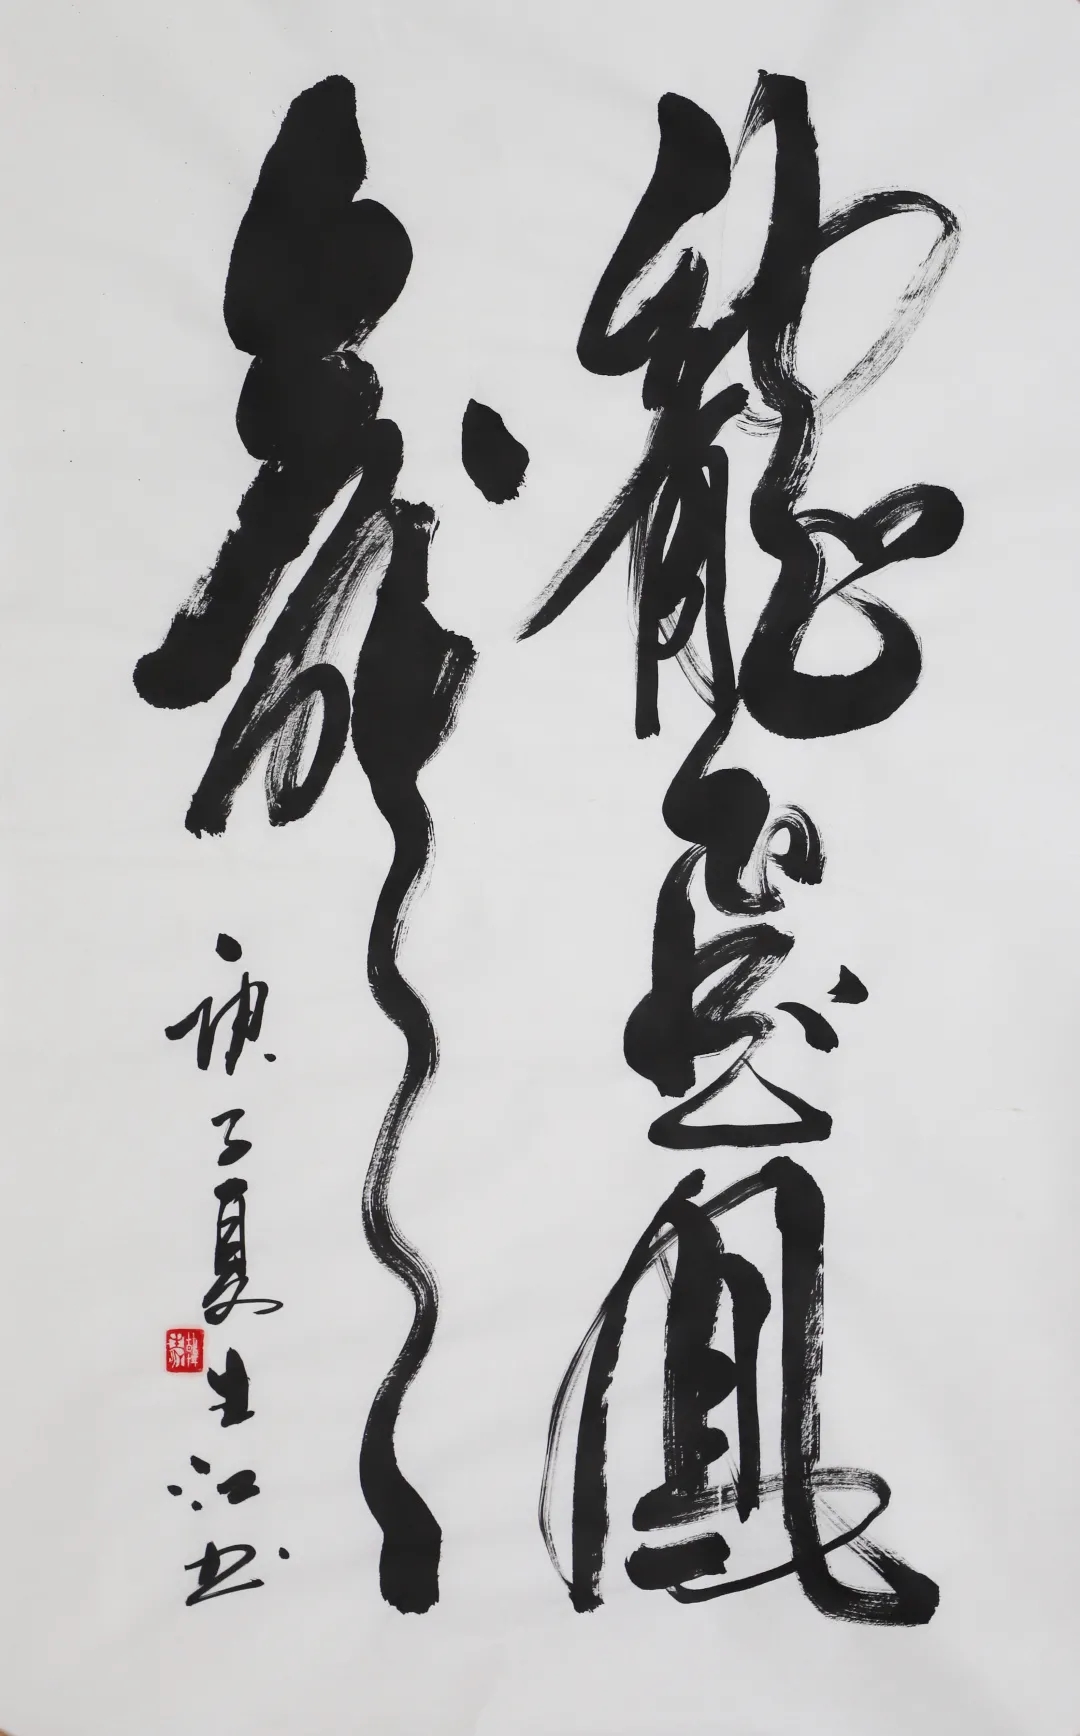 龍飛鳳舞
庚子夏生江书